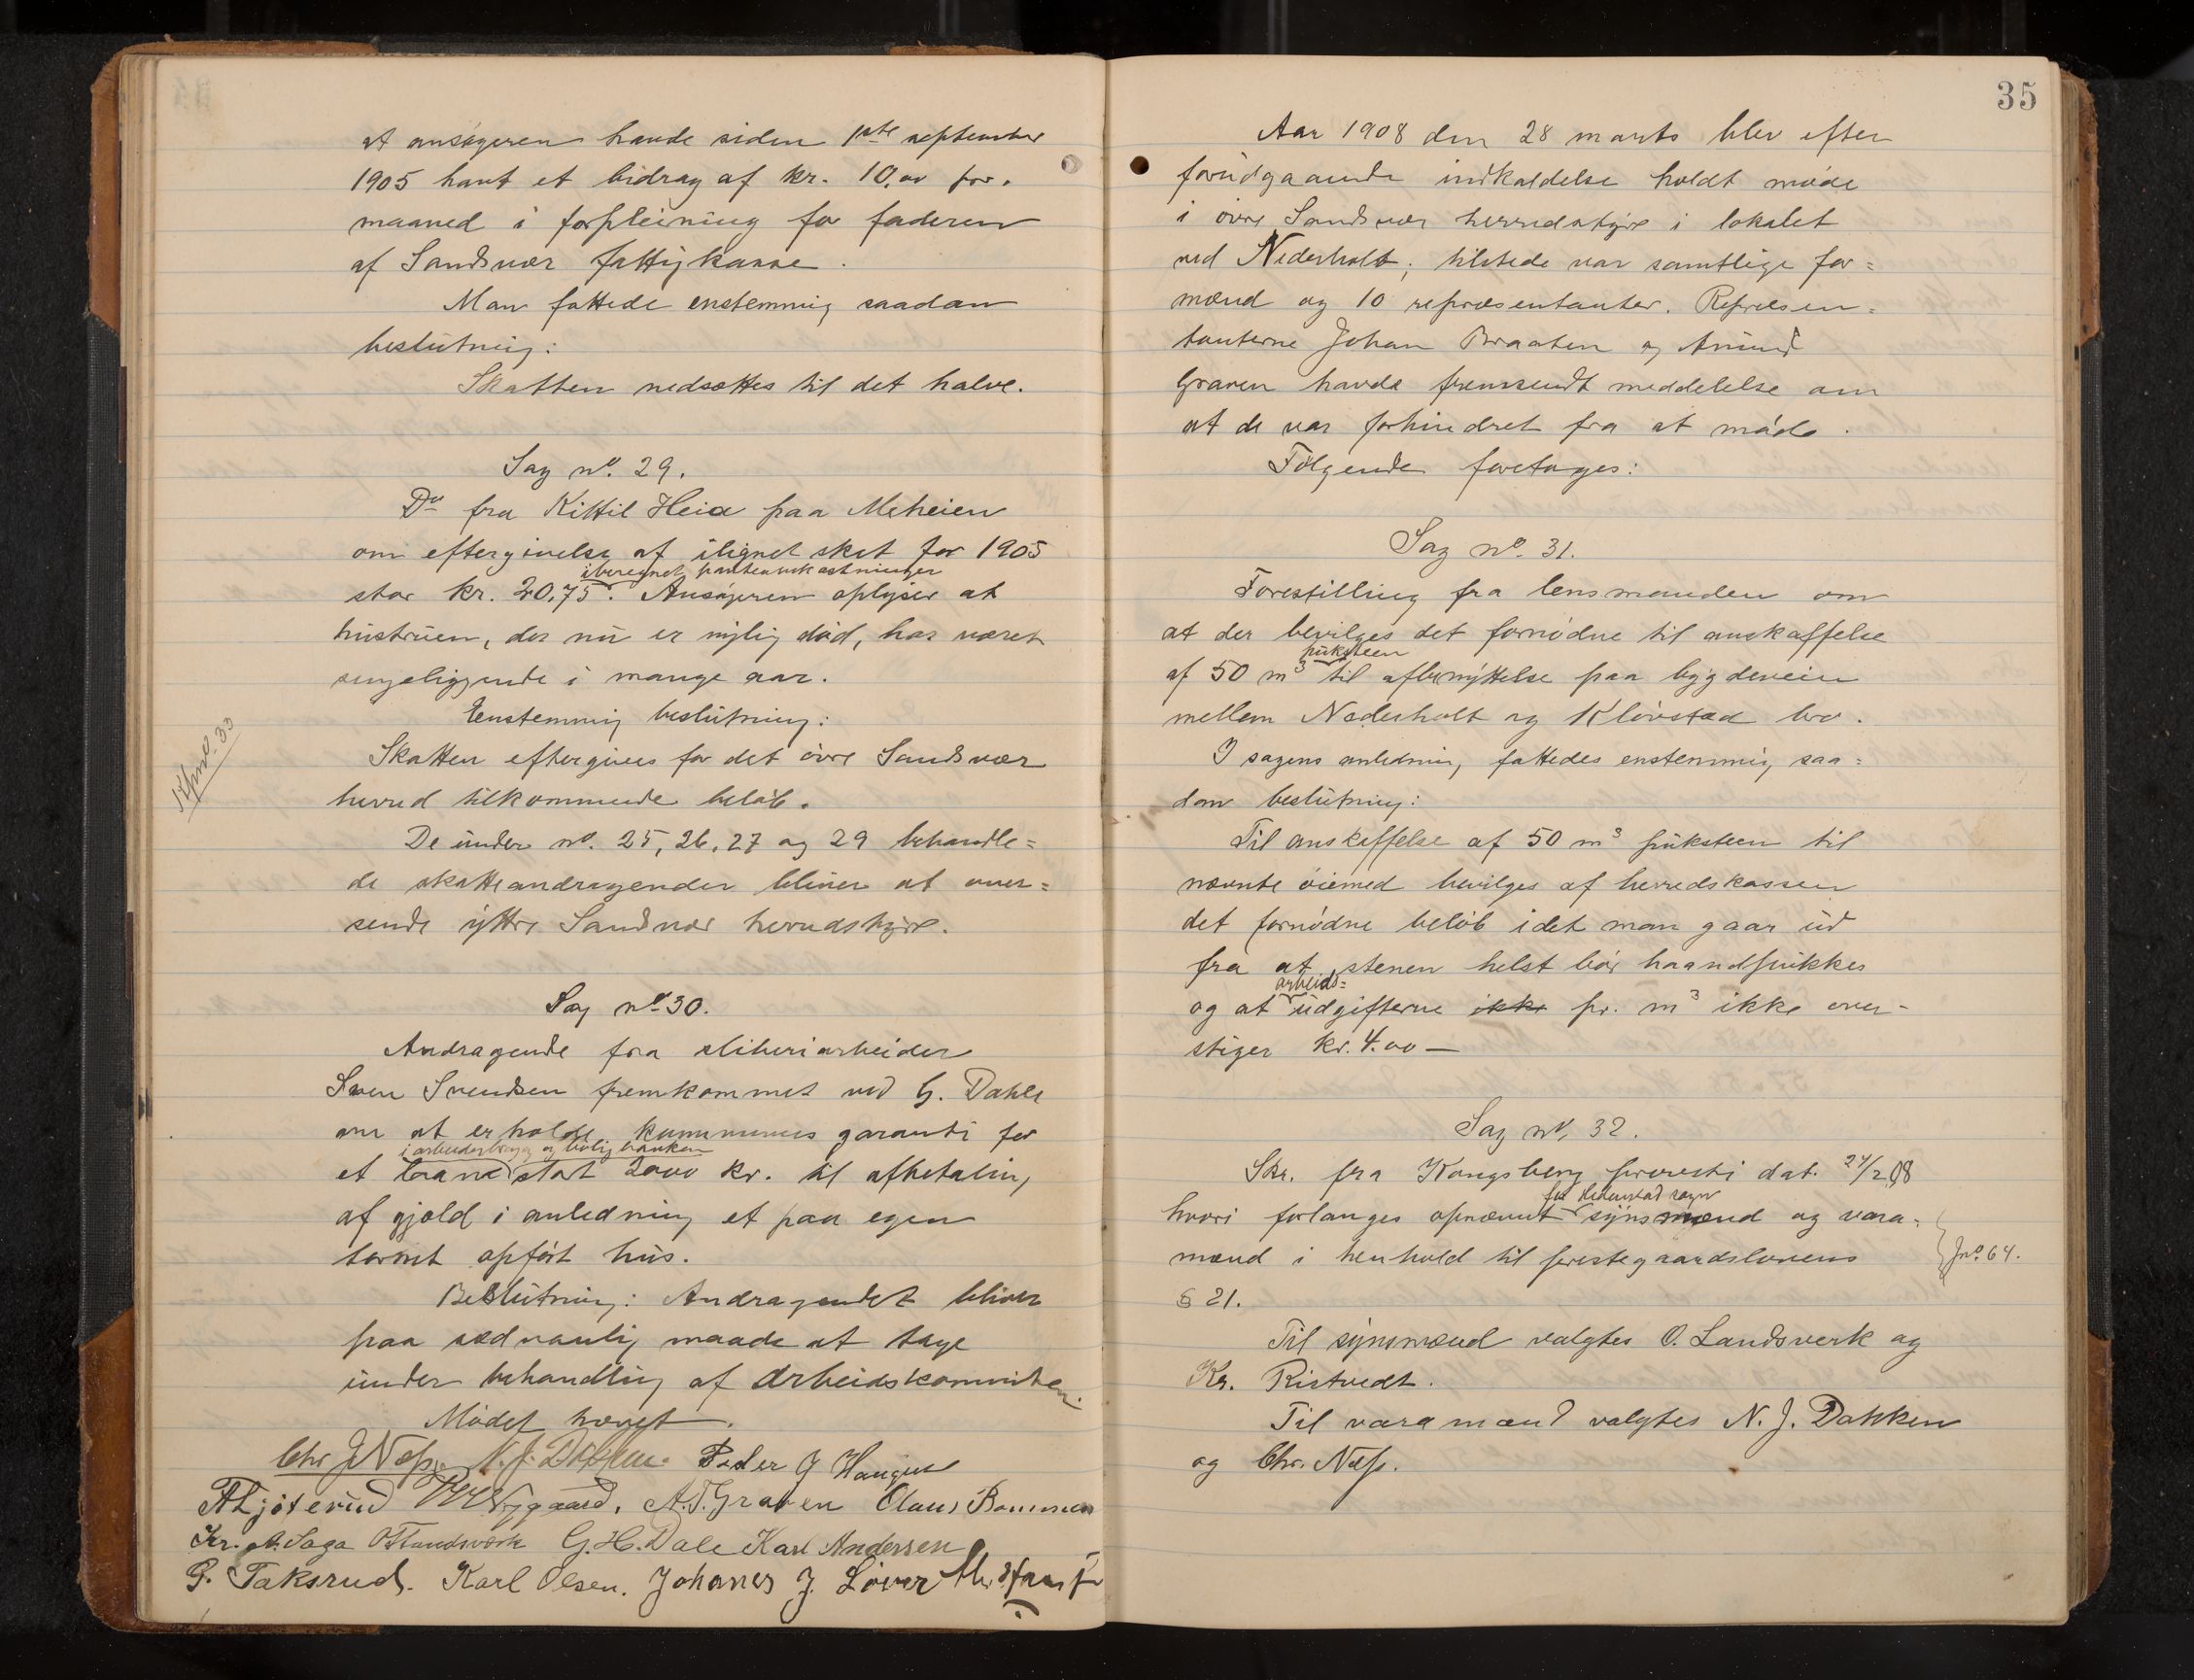 at ansøgeren havde siden 1ste september
1905 havt et bidrag af kr. 10,00 pr.
maaned i forpleining for faderen
af Sandsvær fattigkasse.
Man fattede enstemmig saadan
beslutning:
Skatten nedsættes til det halve.
Sag no. 29.
Do fra Kittil Heia paa Meheien
om eftergivelse af ilignet skat for 1905
iberegnet panteomkostninger
stor kr. 20,75. Ansøgeren oplyser at
hustruen, der nu er nylig død, har været
sengeliggende i mange aar.
Enstemmig beslutning:
Skatten eftergives for det øvre Sandsvær
herred tilkommende beløb.
De under no. 25, 26, 27 og 29 behandle=
de skatteandragender bliver at over=
sende yttre Sandsvær herredsstyre.
Sag no 30.
Andragende fra sliberiarbeider
Sven Svendsen fremkommet ved G. Dahle
om at erholde kommunens garanti for
i arbeiderbrug og bolig banken
et laan stort 2000 kr. til afbetaling
af gjæld i anledning et paa egen
tomt opført hus.
Beslutning: Andragendet bliver
paa sædvanlig maade at tage
under behandling af arbeidskommiteen.
Mødet hævet.
Chr. J Næss. N. J. Dokken. Peder G Haugen
A Ljøterud Nygaard. A.T. Graven Claus Bommen
Kr. A. Saga O Landsværk G. H. Dale Karl Andersen
P. Taksrud. Karl Olsen. Johanes J. Løver
35
Aar 1908 den 28 marts blev efter
forudgaaende indkaldelse holdt møde
i øvre Sandsvær herredsstyre i lokalet
ved Nederholt; tilstede var samtlige for=
mænd og 10 repræsentanter. Repræsen=
tanterne Johan Braaten og Amund
Graven havde fremsendt meddelelse om
at de var forhindret fra at møde.
Følgende foretoges:
Sag no. 31.
Forestilling fra lensmanden om
at der bevilges det fornødne til anskaffelse
puksteen
af 50 m3 til afbenyttelse paa bygdeveien
mellem Nederholt og Kløvstad bro.
I sagens anledning fattedes enstemmig saa=
dan beslutning:
Til anskaffelse af 50 m3 puksteen til
nævnte øiemed bevilges af herredskassen
det fornødne beløb idet man gaar ud
fra at stenen helst bør haandpukkes
arbeids=
og at udgifterne ikke pr. m3 ikke over-
stiger kr. 4.00 —
Sag no. 32.
Skr. fra Kongsberg provesti dat. 27/2 08
for Hedenstad sogn
hvori forlanges opnævnt synsmænd og vara=
mænd i henhold til prestegaardslovens
§ 21.
Jno. 64.
Til synsmænd valgtes O. Landsverk og
Kr. Ristvedt.
Til varamænd valgtes N. J. Dokken
og Chr. Næss.